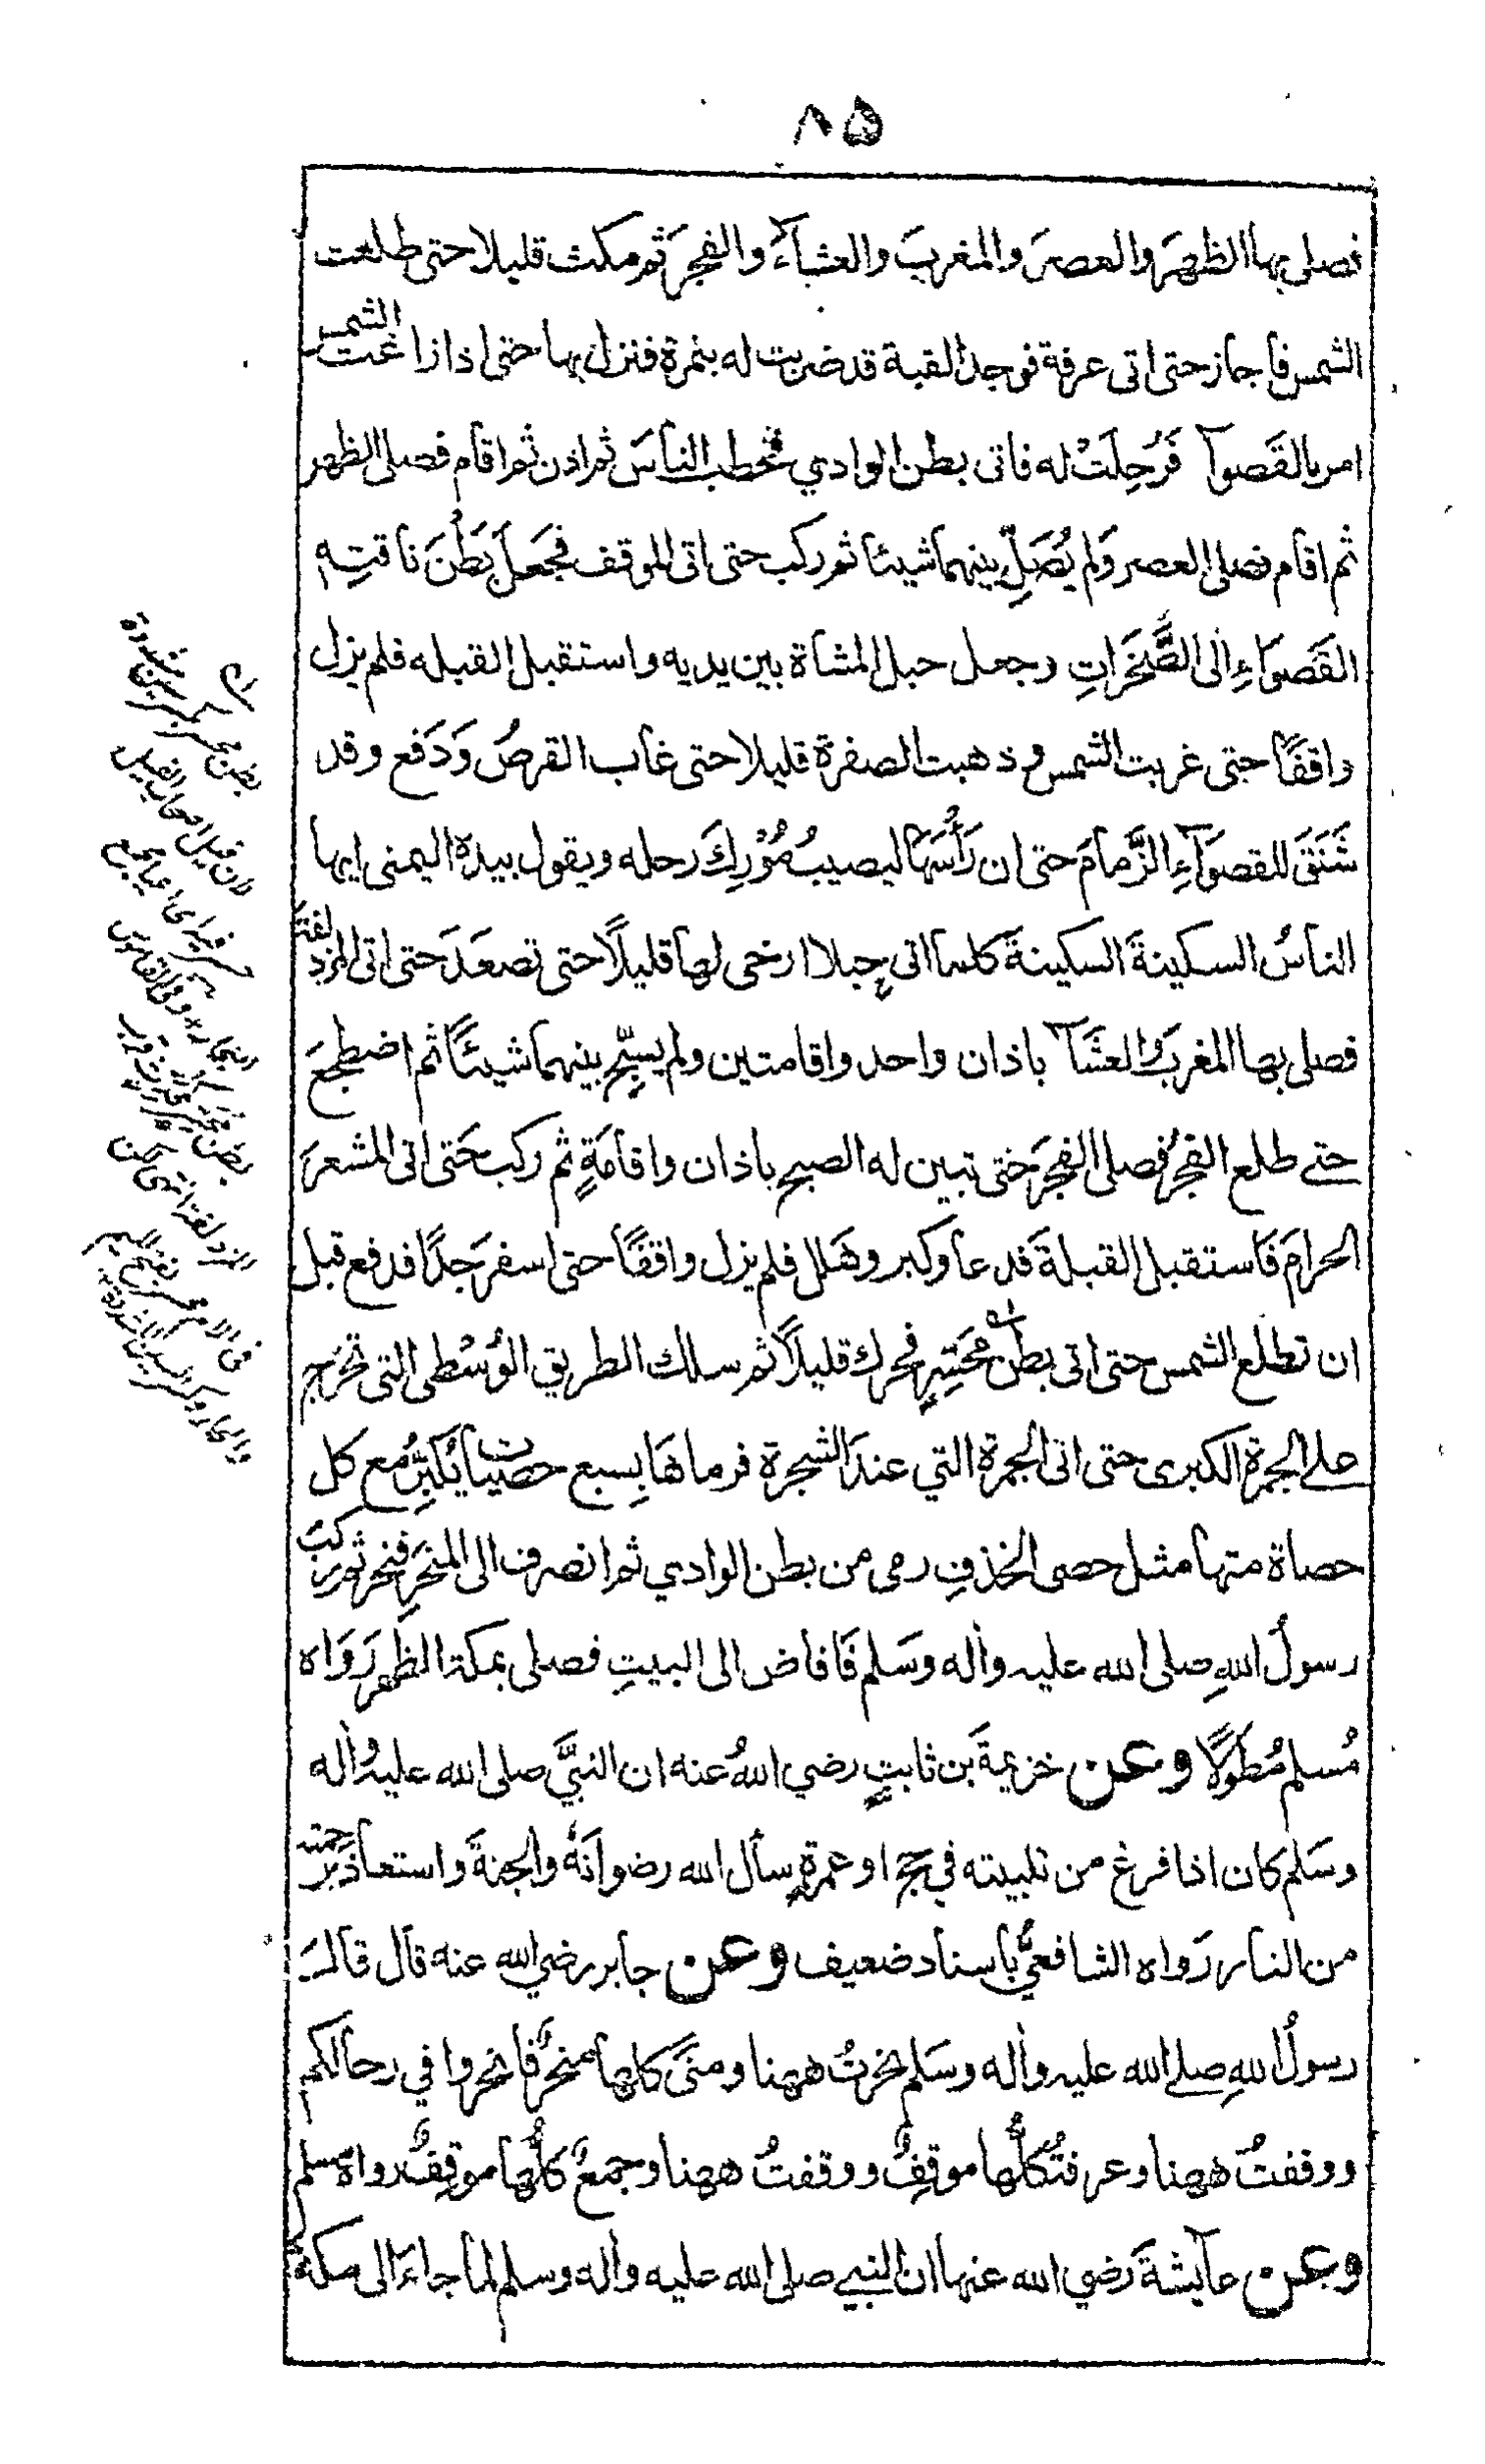 ٨٥
فصلى بها الظهرَ والعصرَ والمغربَ والعشآءَ والفجرَ ثم مكث قليلا حتى طلعت
الشمس فاجاز حتى اتى عرفة فوجد القبة قد ضربت له بنمرة فنزل بها حتى اذا زاغت الشمس
امر بالقَصوآ فَرُحِلَتْ له فاتى بطن الوادي فخطب الناسَ ثم اذن ثم اقام فصلى الظهر
ثم اقام فصلى العصر ولم يُصَلِّ بينهما شيئا ثم ركب حتى اتى الموقف فجَعَلَ بَطْنَ ناقتِهِ
القَصوَاءِ الى الصَّخَراتِ وجعل حبل المشاة بين يديه واستقبل القبله فلم يزل
واقفًا حتى غربت الشمس وذهبت الصفرة قليلا حتى غاب القرصُ وَدَفع وقد
شَنَقَ للقصوآءِ الزَّمامَ حتى ان رَأْسَهَا ليصيبُ مُوْرِكَ رحله ويقول بيده اليمنى ايها
الناسُ السكينةَ السكينةَ كلما اتى حبلا ارخى لها قليلًا حتى تصعَدَ حتى اتى المزدلفة
فصلى بها المغربَ والعشآ باذان واحد واقامتين ولم يسبِّح بينهما شيئًا ثم اضطجعَ
حتے طلع الفجرُ فصلى الفجرَ حتى تبين له الصبح باذان واقامَةٍ ثم ركب حَتى اتى المشعرَ
الحرامَ فَاستقبل القبلةَ فدعا وكبر وهَلل فلم يزل واقفًا حتى اسفرَ جدًا فدفع قبل
ان تطلع الشمس حتى اتى بطن محَسِّرٍ فحرك قليلًا ثم سلك الطريق الوُسْطى التى تخرج
على الجمرة الكبرى حتى اتى الجمرة التي عندَ الشجرة فرماهَا بِسبع حصيات يُكَبِّرُ مع كل
حصاة منها مثل حصى الخذفِ رمى من بطن الوادي ثم انصرف الى المنحَرِ فنحر ثم ركبَ
رسولُ اللهِ صلى الله عليه واٰله وسَلم فَافاض الى البيتِ فصلى بمكة الظهر رَوَاه
مُسلم مُطَولًا وعن خزيمةَ بن ثابتٍ رضي اللهُ عنه ان النبيَّ صلى الله عليه واٰله
وسَلم كان اذا فرغ من تلبيته في حج او عمرةٍ سأل الله رضوانَهُ والجنةَ واستعاذ برحمته
من النار رَواه الشافعيُّ باسناد ضعيف وعن جابر رضي الله عنه قال قالَ
رسولُ اللهِ صلے الله عليه واٰله وسَلم نحرتُ ههنا ومنًى كلها منحَرٌ فانحروا في رحالكم
ووقفتُ ههنا وعرفتُ كلُّها موقِفٌ ووقفتُ ههنا وجمعٌ كلُّها موقِفٌ رواه مسلم
وعن عآيشةَ رضي الله عنها ان النبيے صلى الله عليه واٰله وسلم لما جاءَ الى مكة